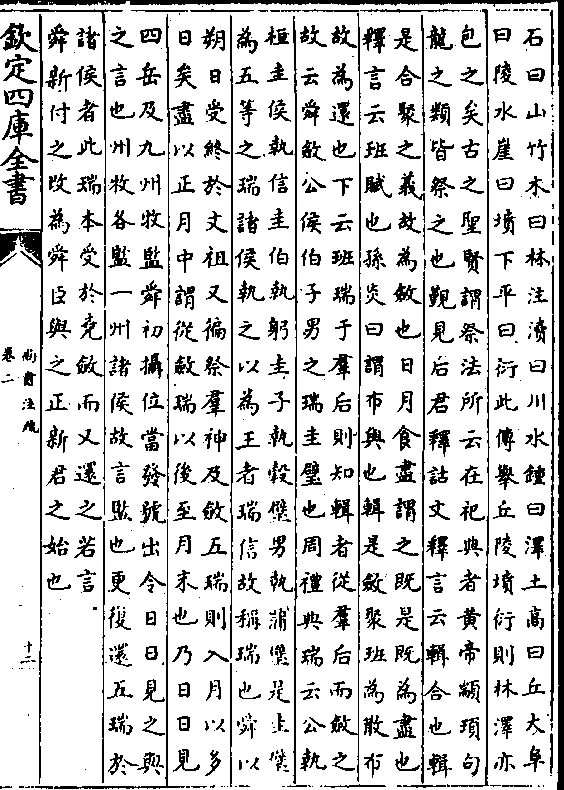 石曰山竹木曰林注瀆曰川水鍾曰澤土髙曰丘大阜
曰陵水崖曰墳下平曰衍此傳舉丘陵墳衍則林澤亦
包之矣古之聖賢謂祭法所云在祀典者黄帝顓頊句
龍之類皆祭之也覲見后君釋詁文釋言云輯合也輯
是合聚之義故為斂也日月食盡謂之既是既為盡也
釋言云班賦也孫炎曰謂布與也輯是斂聚班為散布
故為還也下云班瑞于羣后則知輯者從羣后而斂之
故云舜斂公侯伯子男之瑞圭璧也周禮典瑞云公執
桓圭侯執信圭伯執躬圭子執穀璧男執蒲璧是圭璧
為五等之瑞諸侯執之以為王者瑞信故稱瑞也舜以
朔日受終於文祖又徧祭羣神及斂五瑞則入月以多
日矣盡以正月中謂從斂瑞以後至月末也乃日日見
四岳及九州牧監舜初攝位當發號出令日日見之與
之言也州牧各監一州諸侯故言監也更復還五瑞於
諸侯者此瑞本受於堯斂而又還之若言
舜新付之改為舜臣與之正新君之始也
欽定四庫全書
尚書注疏
卷二
十二